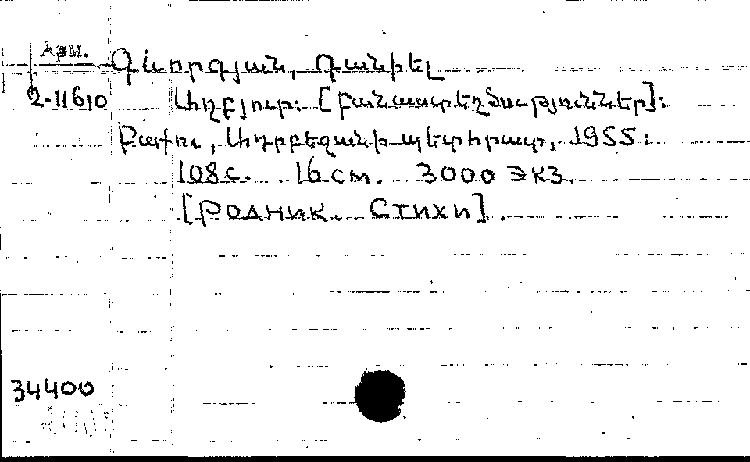 Арм.
Գևորգյան, Դանիել
2-11610
Աղբյուր: [Բանաստեղծություններ]:
Բաքու, Ադրբեջանի պետհրատ, 1955:
108 с. 16 см. 3000 экз.
[Родник. Стихи].
34400